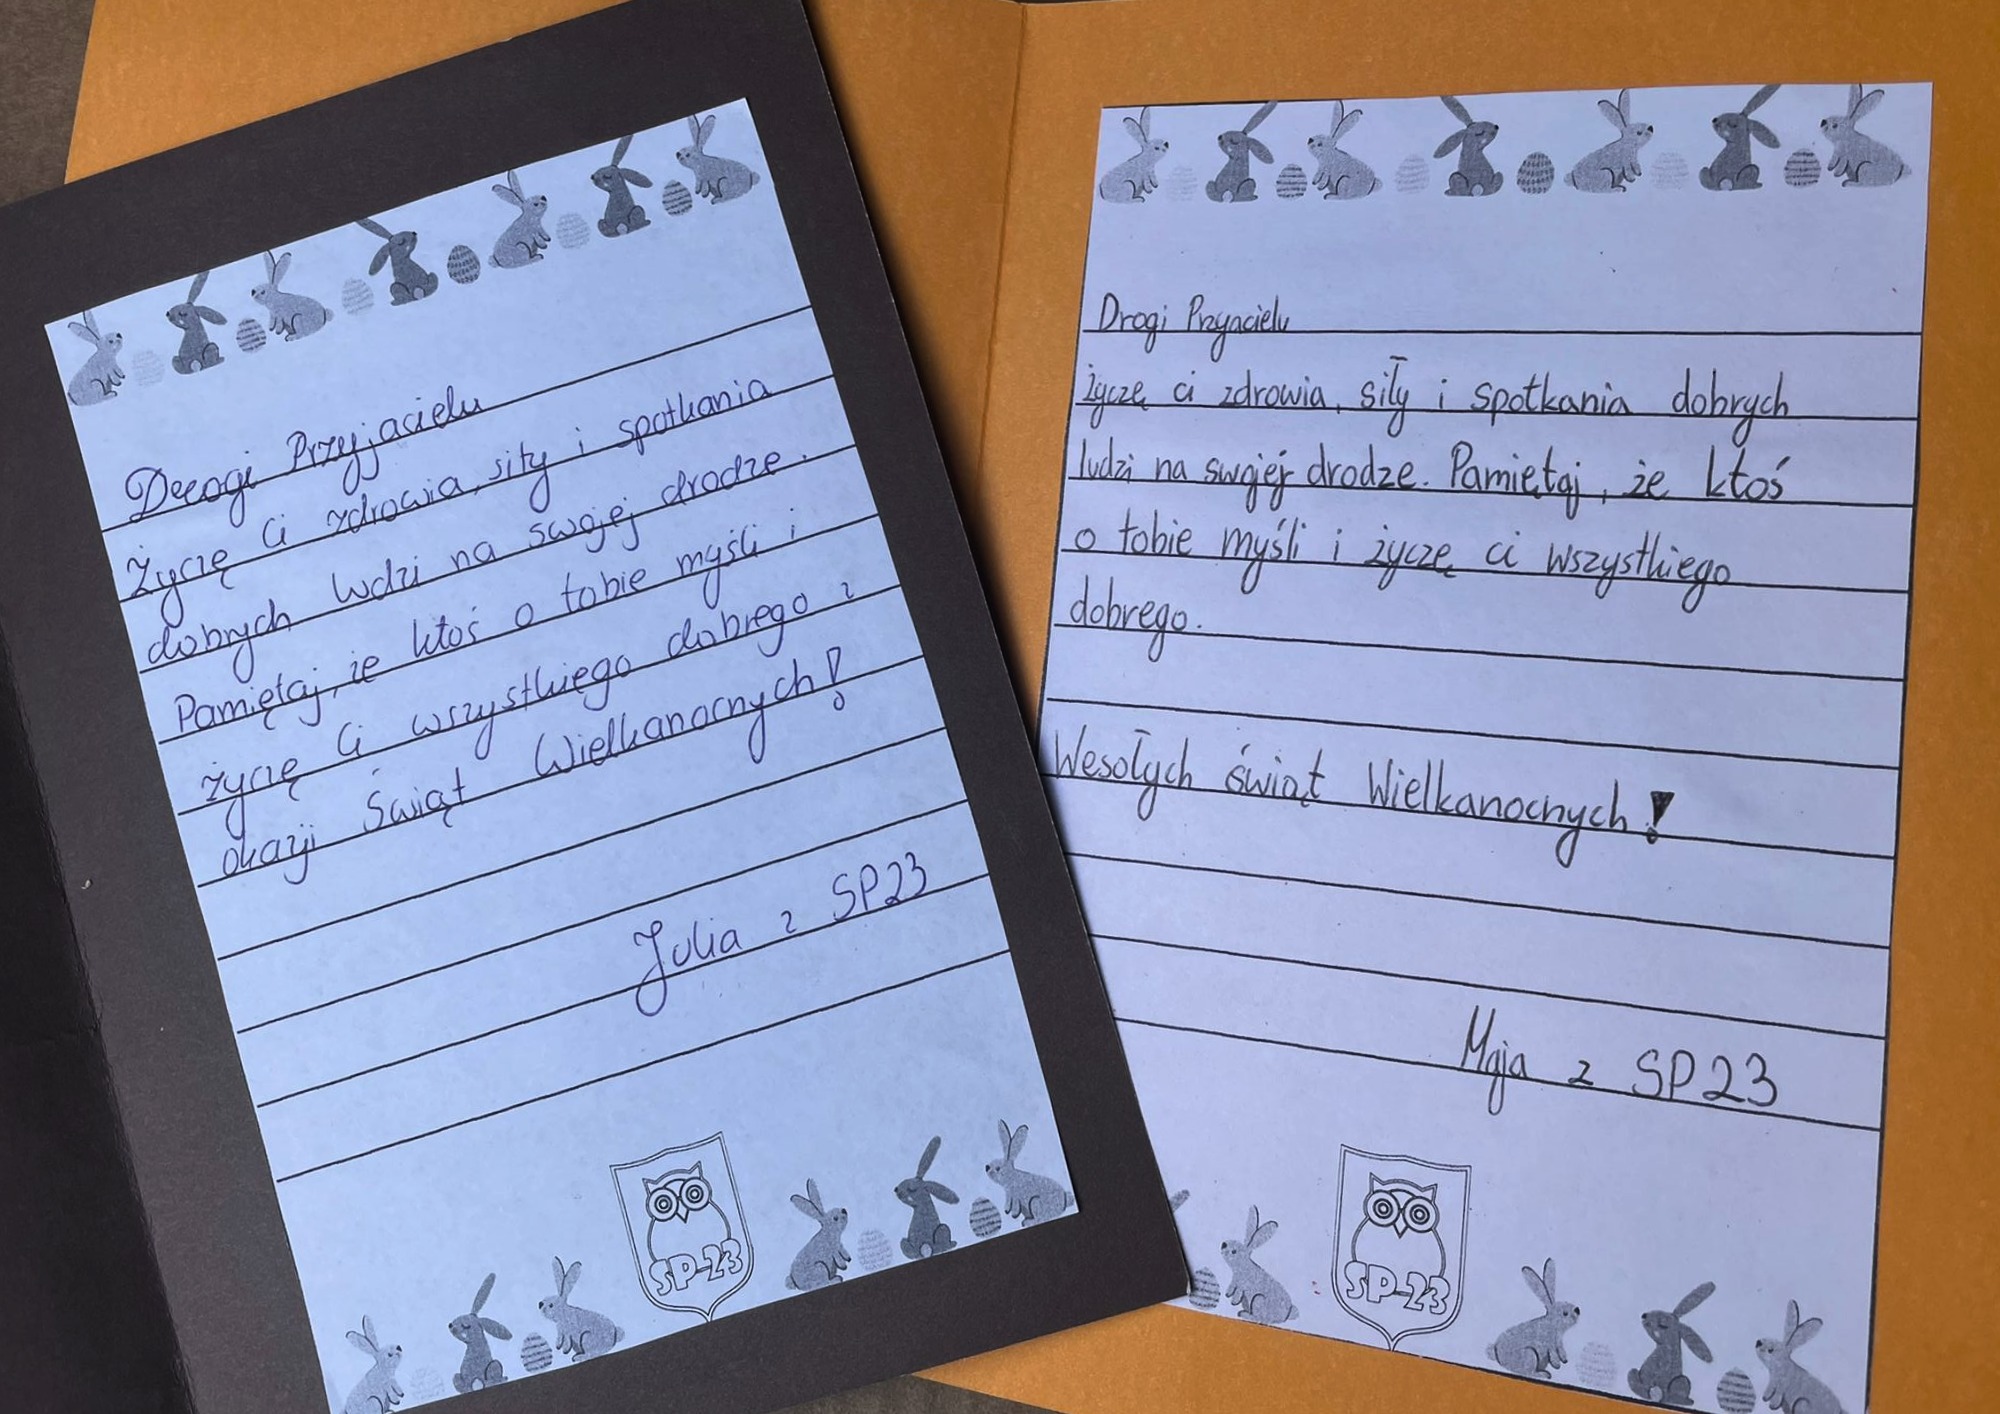 Drogi Przyjacielu
Życzę Ci zdrowia, siły i spotkania
dobrych ludzi na swojej drodze.
Pamiętaj, że ktoś o tobie myśli i
życzę Ci wszystkiego dobrego z
okazji Świąt Wielkanocnych!
Julia z SP23
SP-23
Drogi Przyjacielu
życzę ci zdrowia, siły i spotkania dobrych
ludzi na swojej drodze. Pamiętaj, że ktoś
o tobie myśli i życzę ci wszystkiego
dobrego.
Wesołych świąt Wielkanocnych!
Maja z SP23
SP-23